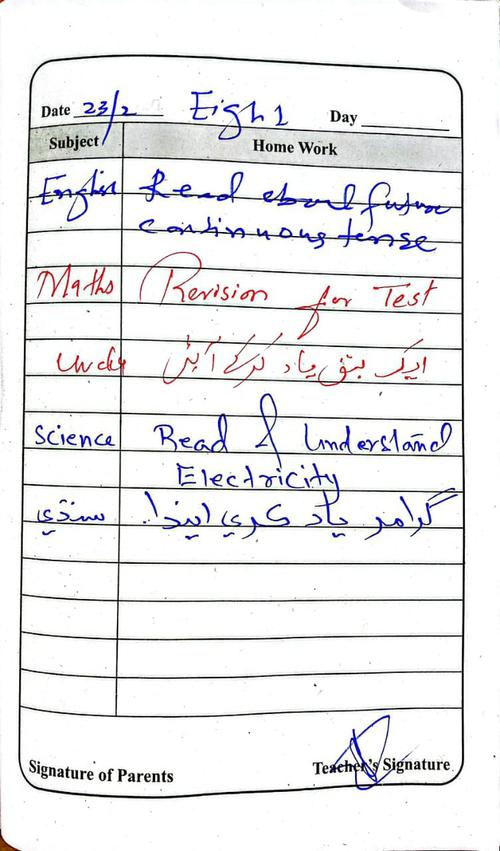 Date 23/2 Eigh1 Day
Subject Home Work
English Read about future
continuous tense
Maths Revision for Test
Urdu ایک سبق یاد کرکے آئیں
Science Read & Understand
Electricity
سنڌي گرامر ياد ڪري ايندا.
Signature of Parents Teacher's Signature